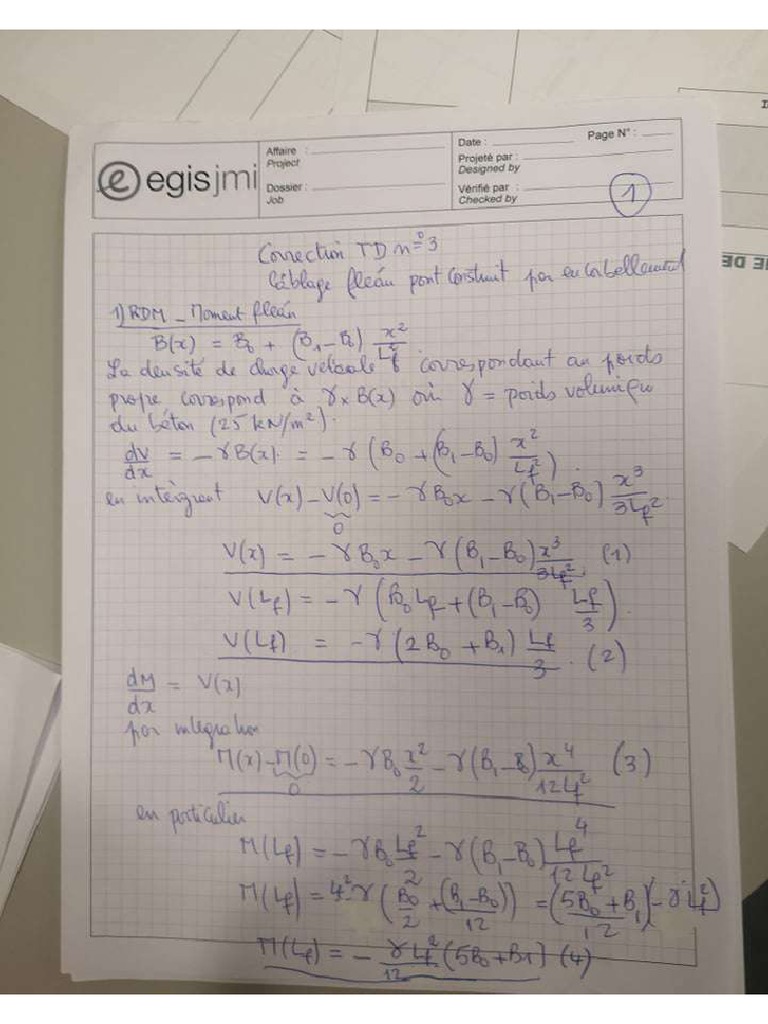 egis jmi
Affaire :
Project
Dossier :
Job
Date :
Page N° :
Projeté par :
Designed by
Vérifié par :
Checked by
1
Correction TD n°3
Câblage fléau pont construit par encorbellement
1) RDM - Moment fléau
B(x) = B₀ + (B₁ - B₀) x²/Lf²
La densité de charge verticale correspondant au poids
propre correspond à γ × B(x) où γ = poids volumique
du béton (25 kN/m²).
dV/dx = - γB(x) = - γ (B₀ + (B₁ - B₀) x²/Lf²).
en intégrant V(x) - V(0) = - γB₀x - γ(B₁ - B₀) x³/3Lf²
0
V(x) = - γB₀x - γ(B₁ - B₀) x³/3Lf² (1)
V(Lf) = - γ (B₀Lf + (B₁ - B₀) Lf/3).
V(Lf) = - γ (2B₀ + B₁) Lf/3. (2)
dM/dx = V(x)
par intégration
M(x) - M(0) = - γB₀ x²/2 - γ(B₁ - B₀) x⁴/12Lf² (3)
0
en particulier
M(Lf) = - γB₀ Lf²/2 - γ(B₁ - B₀) Lf⁴/12Lf²
M(Lf) = Lf²γ (B₀/2 + (B₁ - B₀)/12) = (5B₀ + B₁/12)(- γLf²)
M(Lf) = - γLf²/12 (5B₀ + B₁) (4)